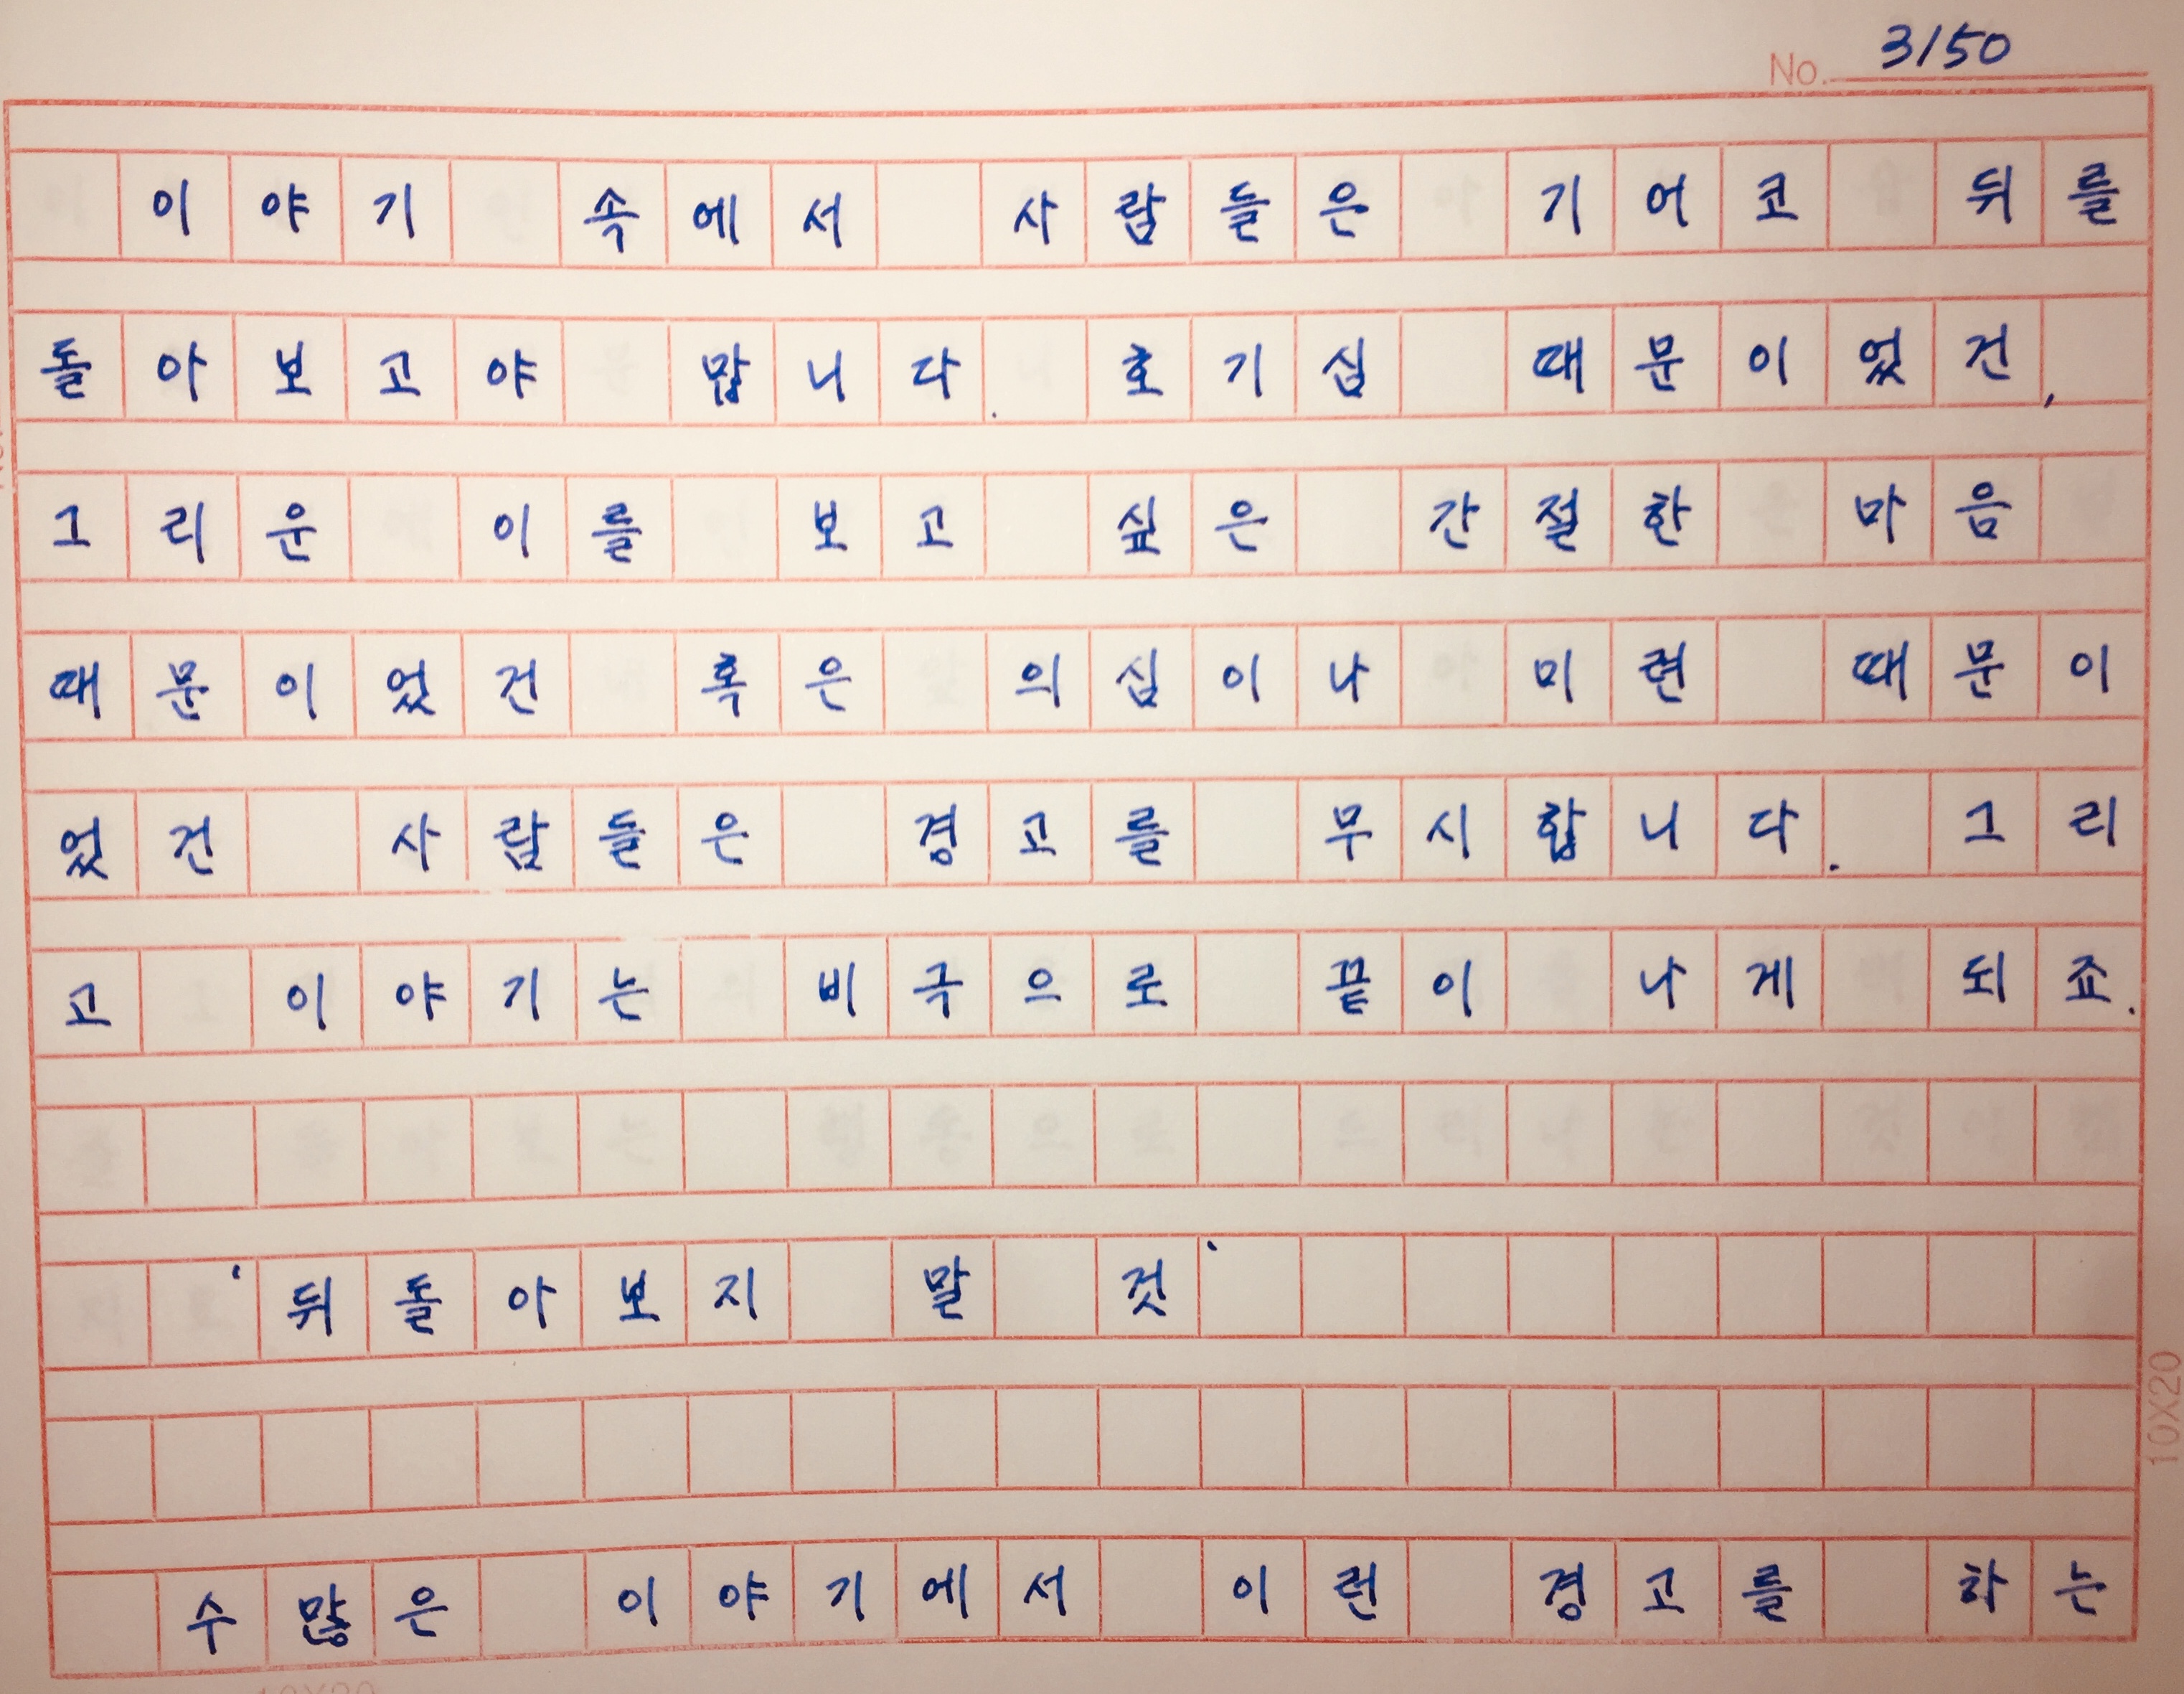 No. 3/50
이야기 속에서 사람들은 기어코 뒤를
돌아보고야 맙니다. 호기심 때문이었건,
그리운 이를 보고 싶은 간절한 마음
때문이었건 혹은 의심이나 미련 때문이
었건 사람들은 경고를 무시합니다. 그리
고 이야기는 비극으로 끝이 나게 되죠.
'뒤돌아보지 말 것'
수많은 이야기에서 이런 경고를 하는
10X20